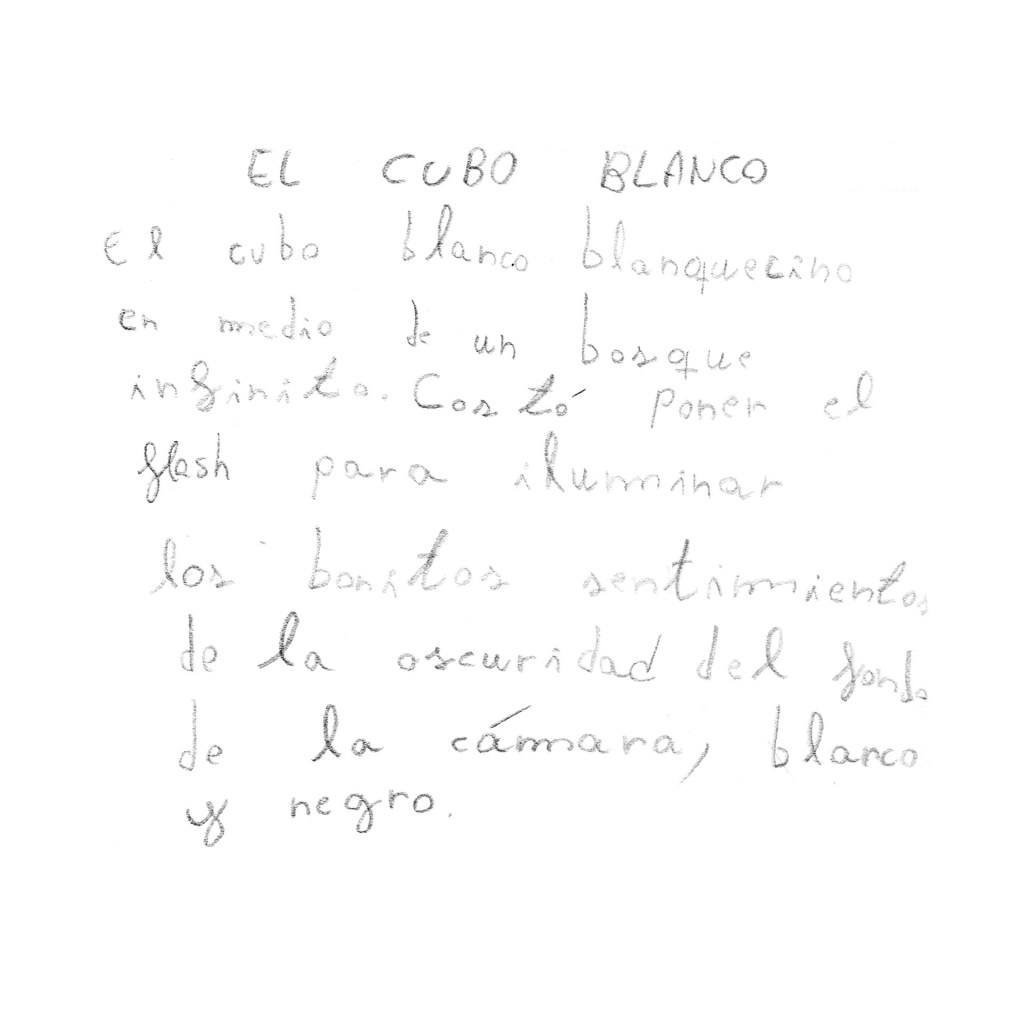 EL CUBO BLANCO
El cubo blanco blanquecino
en medio de un bosque
infinito. Costó poner el
flash para iluminar
los bonitos sentimientos
de la oscuridad del fondo
de la cámara, blanco
y negro.